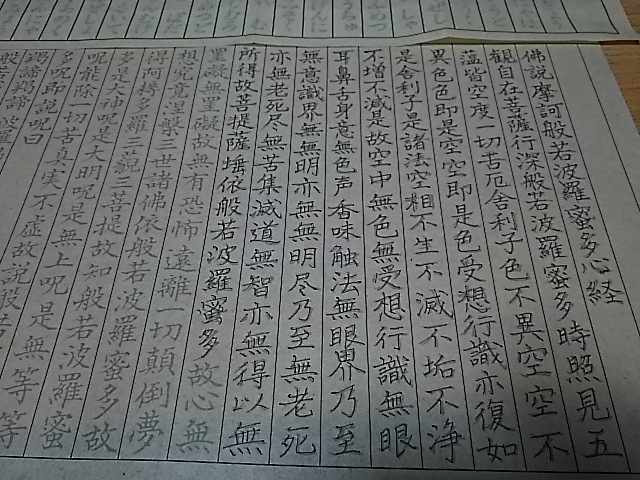 佛説摩訶般若波羅蜜多心経
観自在菩薩行深般若波羅蜜多時照見五
蕰皆空度一切苦厄舎利子色不異空空不
異色色即是空空即是色受想行識亦復如
是舎利子是諸法空相不生不滅不垢不浄
不増不減是故空中無色無受想行識無眼
耳鼻舌身意無色声香味触法無眼界乃至
無意識界無無明亦無無明尽乃至無老死
亦無老死尽無苦集滅道無智亦無得以無
所得故菩提薩埵依般若波羅蜜多故心無
罣礙無罣礙故無有恐怖遠離一切顛倒夢
想究竟涅槃三世諸佛依般若波羅蜜多故
得阿耨多羅三藐三菩提故知般若波羅蜜
多是大神呪是大明呪是無上呪是無等等
呪能除一切苦真実不虚故説般若
多呪即説呪曰
羯諦羯諦 波羅
般若